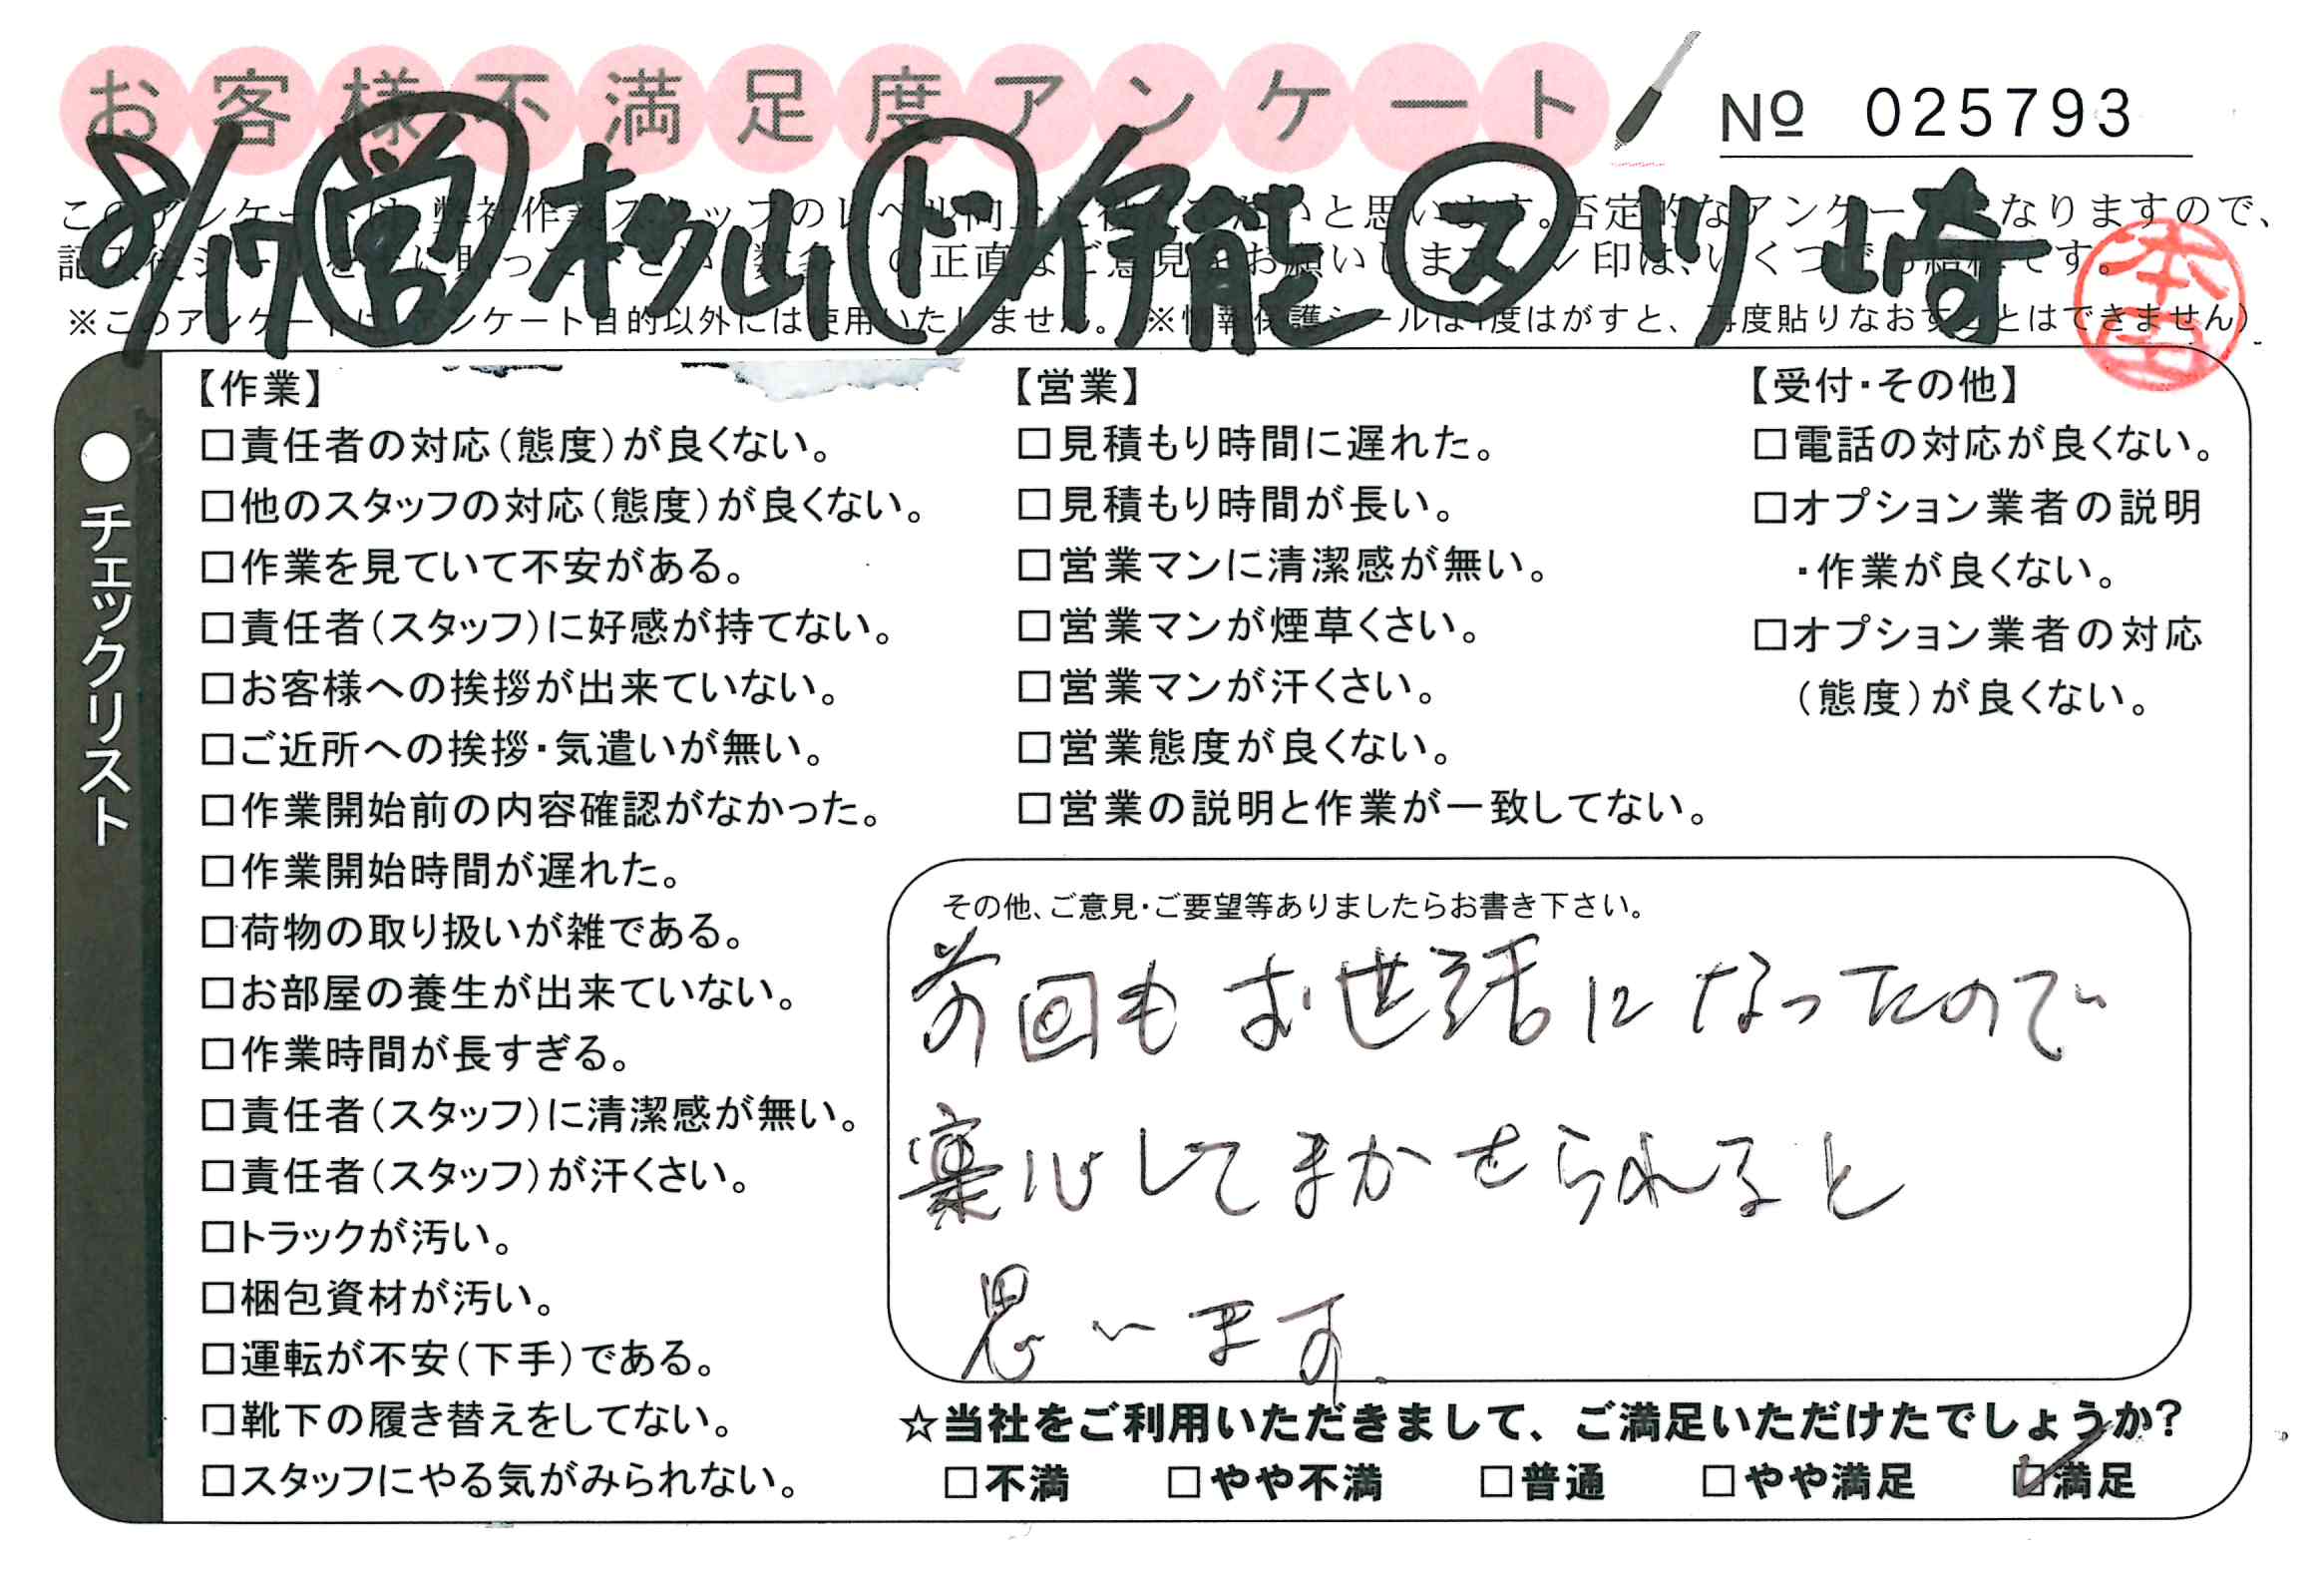 お客様不満足度アンケート
№ 025793
8/17 営 杉山 ド 伊能 ス 川崎
本田
※このアンケートは、アンケート目的以外には使用いたしません。 ※情報保護シールは1度はがすと、再度貼りなおすことはできません)
●チェックリスト
【作業】
□責任者の対応(態度)が良くない。
□他のスタッフの対応(態度)が良くない。
□作業を見ていて不安がある。
□責任者(スタッフ)に好感が持てない。
□お客様への挨拶が出来ていない。
□ご近所への挨拶・気遣いが無い。
□作業開始前の内容確認がなかった。
□作業開始時間が遅れた。
□荷物の取り扱いが雑である。
□お部屋の養生が出来ていない。
□作業時間が長すぎる。
□責任者(スタッフ)に清潔感が無い。
□責任者(スタッフ)が汗くさい。
□トラックが汚い。
□梱包資材が汚い。
□運転が不安(下手)である。
□靴下の履き替えをしてない。
□スタッフにやる気がみられない。
【営業】
□見積もり時間に遅れた。
□見積もり時間が長い。
□営業マンに清潔感が無い。
□営業マンが煙草くさい。
□営業マンが汗くさい。
□営業態度が良くない。
□営業の説明と作業が一致してない。
【受付・その他】
□電話の対応が良くない。
□オプション業者の説明
・作業が良くない。
□オプション業者の対応
(態度)が良くない。
その他、ご意見・ご要望等ありましたらお書き下さい。
前回もお世話になったので
安心してまかせられると
思います.
☆当社をご利用いただきまして、ご満足いただけたでしょうか?
□不満 □やや不満 □普通 □やや満足 ☑満足